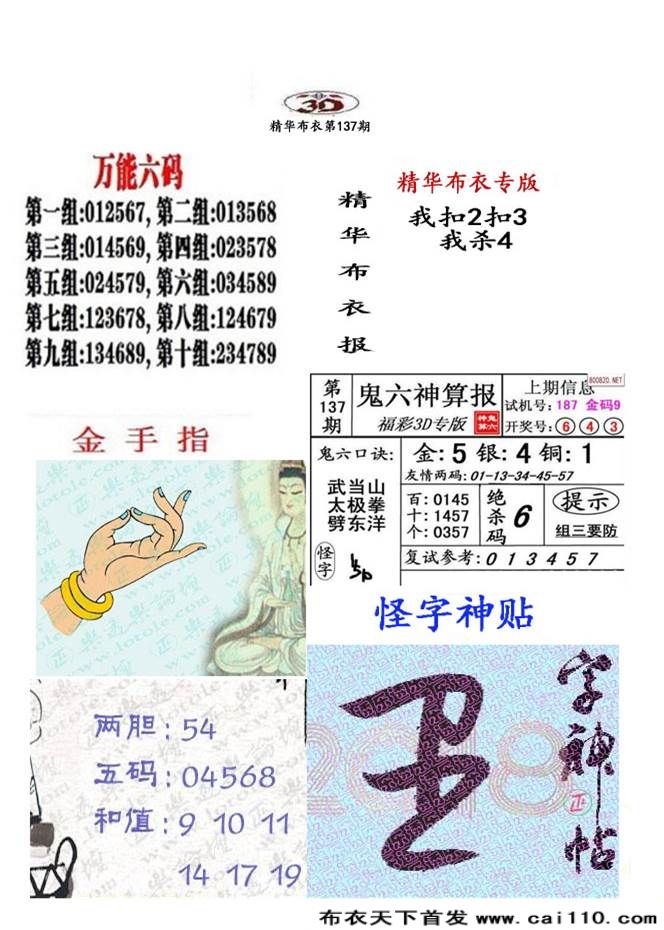 3D
精华布衣第137期
万能六码
第一组:012567,第二组:013568
第三组:014569,第四组:023578
第五组:024579,第六组:034589
第七组:123678,第八组:124679
第九组:134689,第十组:234789
精华布衣报
精华布衣专版
我扣2扣3
我杀4
第137期
鬼六神算报
福彩3D专版
神鬼算六
上期信息
800820.NET
试机号:187 金码9
开奖号:643
鬼六口诀:
武当山
太极拳
劈东洋
金:5 银:4 铜:1
友情两码:01-13-34-45-57
百:0145
十:1457
个:0357
绝杀码 6
提示
组三要防
怪字
复试参考:013457
金手指
两胆:54
五码:04568
和值:9 10 11
14 17 19
怪字神贴
字神帖
正
2018
布衣天下首发 www.cai110.com